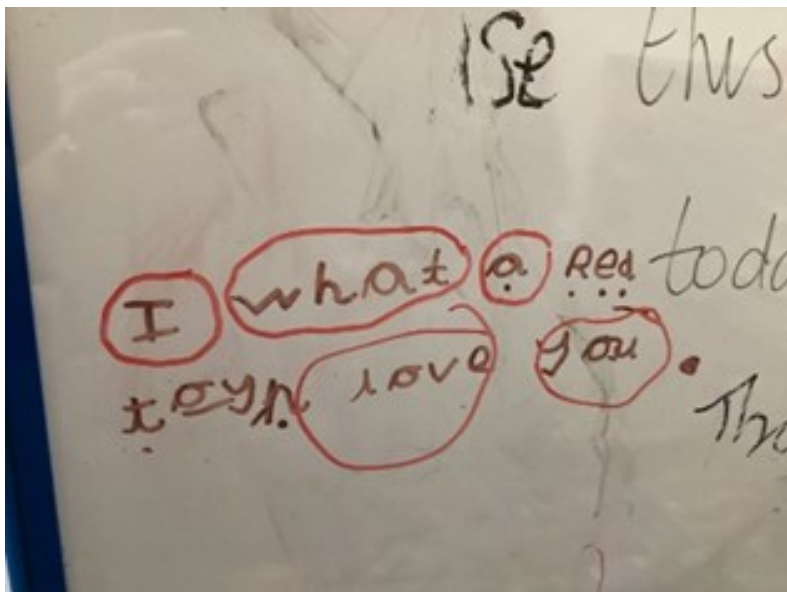 ISe this
I what a Red toda
toyn love you.
Tho